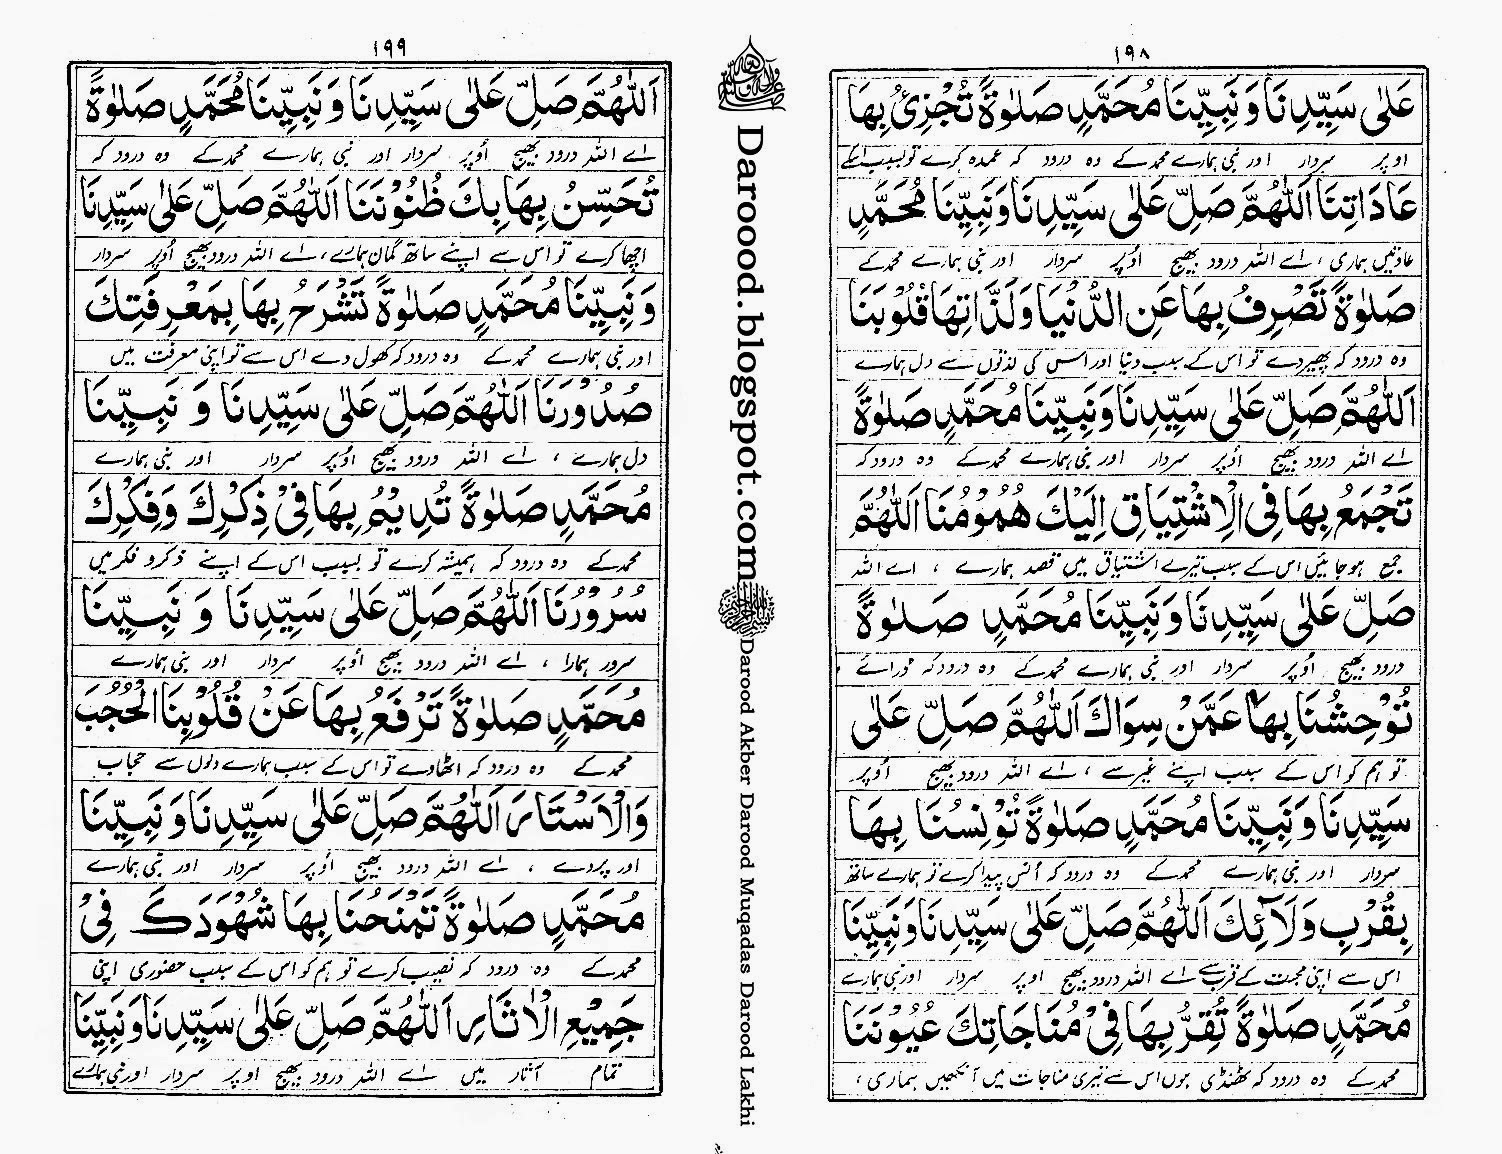 ١٩٨
عَلٰى سَيِّدِنَا وَ نَبِيِّنَا مُحَمَّدٍ صَلٰوةً تُجْزِئُ بِهَا
اوپر سردار اور نبی ہمارے محمد کے وہ درود کہ عمدہ کرے تو بسبب اسکے
عَادَاتِنَا اَللّٰهُمَّ صَلِّ عَلٰى سَيِّدِنَا وَنَبِيِّنَا مُحَمَّدٍ
عادتیں ہماری ، اے اللہ درود بھیج اُوپر سردار اور نبی ہمارے محمد کے
صَلٰوةً تَصْرِفُ بِهَا عَنِ الدُّنْيَا وَلَذَّاتِهَا قُلُوْبَنَا
وہ درود کہ پھیر دے تو اس کے سبب دنیا اور اس کی لذتوں سے دل ہمارے
اَللّٰهُمَّ صَلِّ عَلٰى سَيِّدِنَا وَنَبِيِّنَا مُحَمَّدٍ صَلٰوةً
اے اللہ درود بھیج اُوپر سردار اور نبی ہمارے محمد کے وہ درود کہ
تَجْمَعُ بِهَا فِى الْاِشْتِيَاقِ اِلَيْكَ هُمُوْمَنَا اَللّٰهُمَّ
جمع ہو جائیں اس کے سبب تیرے اشتیاق میں قصد ہمارے ، اے اللہ
صَلِّ عَلٰى سَيِّدِنَا وَنَبِيِّنَا مُحَمَّدٍ صَلٰوةً
درود بھیج اُوپر سردار اور نبی ہمارے محمد کے وہ درود کہ
تُوْحِشُنَا بِهَا عَمَّنْ سِوَاكَ اَللّٰهُمَّ صَلِّ عَلٰى
تو ہم کو اس کے سبب اپنے غیر سے ، اے اللہ درود بھیج اُوپر
سَيِّدِنَا وَنَبِيِّنَا مُحَمَّدٍ صَلٰوةً تُوْنِسُنَا بِهَا
سردار اور نبی ہمارے محمد کے وہ درود کہ اُنس پیدا کرے تو ہمارے ساتھ
بِقُرْبِ وَلَآئِكَ اَللّٰهُمَّ صَلِّ عَلٰى سَيِّدِنَا وَنَبِيِّنَا
اس سے اپنی محبت کے قرب سے اے اللہ درود بھیج اوپر سردار اور نبی ہمارے
مُحَمَّدٍ صَلٰوةً تُقِرُّ بِهَا فِىْ مُنَاجَاتِكَ عُيُوْنَنَا
محمد کے وہ درود کہ ٹھنڈی ہوں اس سے تیری مناجات میں آنکھیں ہماری ،
Darood.blogspot.com
Darood Akber Darood Muqadas Darood Lakhi
١٩٩
اَللّٰهُمَّ صَلِّ عَلٰى سَيِّدِنَا وَ نَبِيِّنَا مُحَمَّدٍ صَلٰوةً
اے اللہ درود بھیج اُوپر سردار اور نبی ہمارے محمد کے وہ درود کہ
تُحَسِّنُ بِهَا بِكَ ظُنُوْنَنَا اَللّٰهُمَّ صَلِّ عَلٰى سَيِّدِنَا
اچھا کرے تو اس سے اپنے ساتھ گمان ہمارے ، اے اللہ درود بھیج اُوپر سردار
وَنَبِيِّنَا مُحَمَّدٍ صَلٰوةً تَشْرَحُ بِهَا بِمَعْرِفَتِكَ
اور نبی ہمارے محمد کے وہ درود کہ کھول دے اس سے تو اپنی معرفت میں
صُدُوْرَنَا اَللّٰهُمَّ صَلِّ عَلٰى سَيِّدِنَا وَ نَبِيِّنَا
دل ہمارے ، اے اللہ درود بھیج اُوپر سردار اور نبی ہمارے
مُحَمَّدٍ صَلٰوةً تُدِيْمُ بِهَا فِىْ ذِكْرِكَ وَفِكْرِكَ
محمد کے وہ درود کہ ہمیشہ کرے تو بسبب اس کے اپنے ذکر و فکر میں
سُرُوْرَنَا اَللّٰهُمَّ صَلِّ عَلٰى سَيِّدِنَا وَ نَبِيِّنَا
سرور ہمارا ، اے اللہ درود بھیج اُوپر سردار اور نبی ہمارے
مُحَمَّدٍ صَلٰوةً تَرْفَعُ بِهَا عَنْ قُلُوْبِنَا الْحُجُبَ
محمد کے وہ درود کہ اٹھا دے تو اس کے سبب ہمارے دلوں سے حجاب
وَالْاَسْتَارَ اَللّٰهُمَّ صَلِّ عَلٰى سَيِّدِنَا وَنَبِيِّنَا
اور پردے ، اے اللہ درود بھیج اُوپر سردار اور نبی ہمارے
مُحَمَّدٍ صَلٰوةً تَمْنَحُنَا بِهَا شُهُوْدَكَ فِىْ
محمد کے وہ درود کہ نصیب کرے تو ہم کو اس کے سبب حضوری اپنی
جَمِيْعِ الْاٰثَارِ اَللّٰهُمَّ صَلِّ عَلٰى سَيِّدِنَا وَنَبِيِّنَا
تمام آثار میں اے اللہ درود بھیج اوپر سردار اور نبی ہمارے